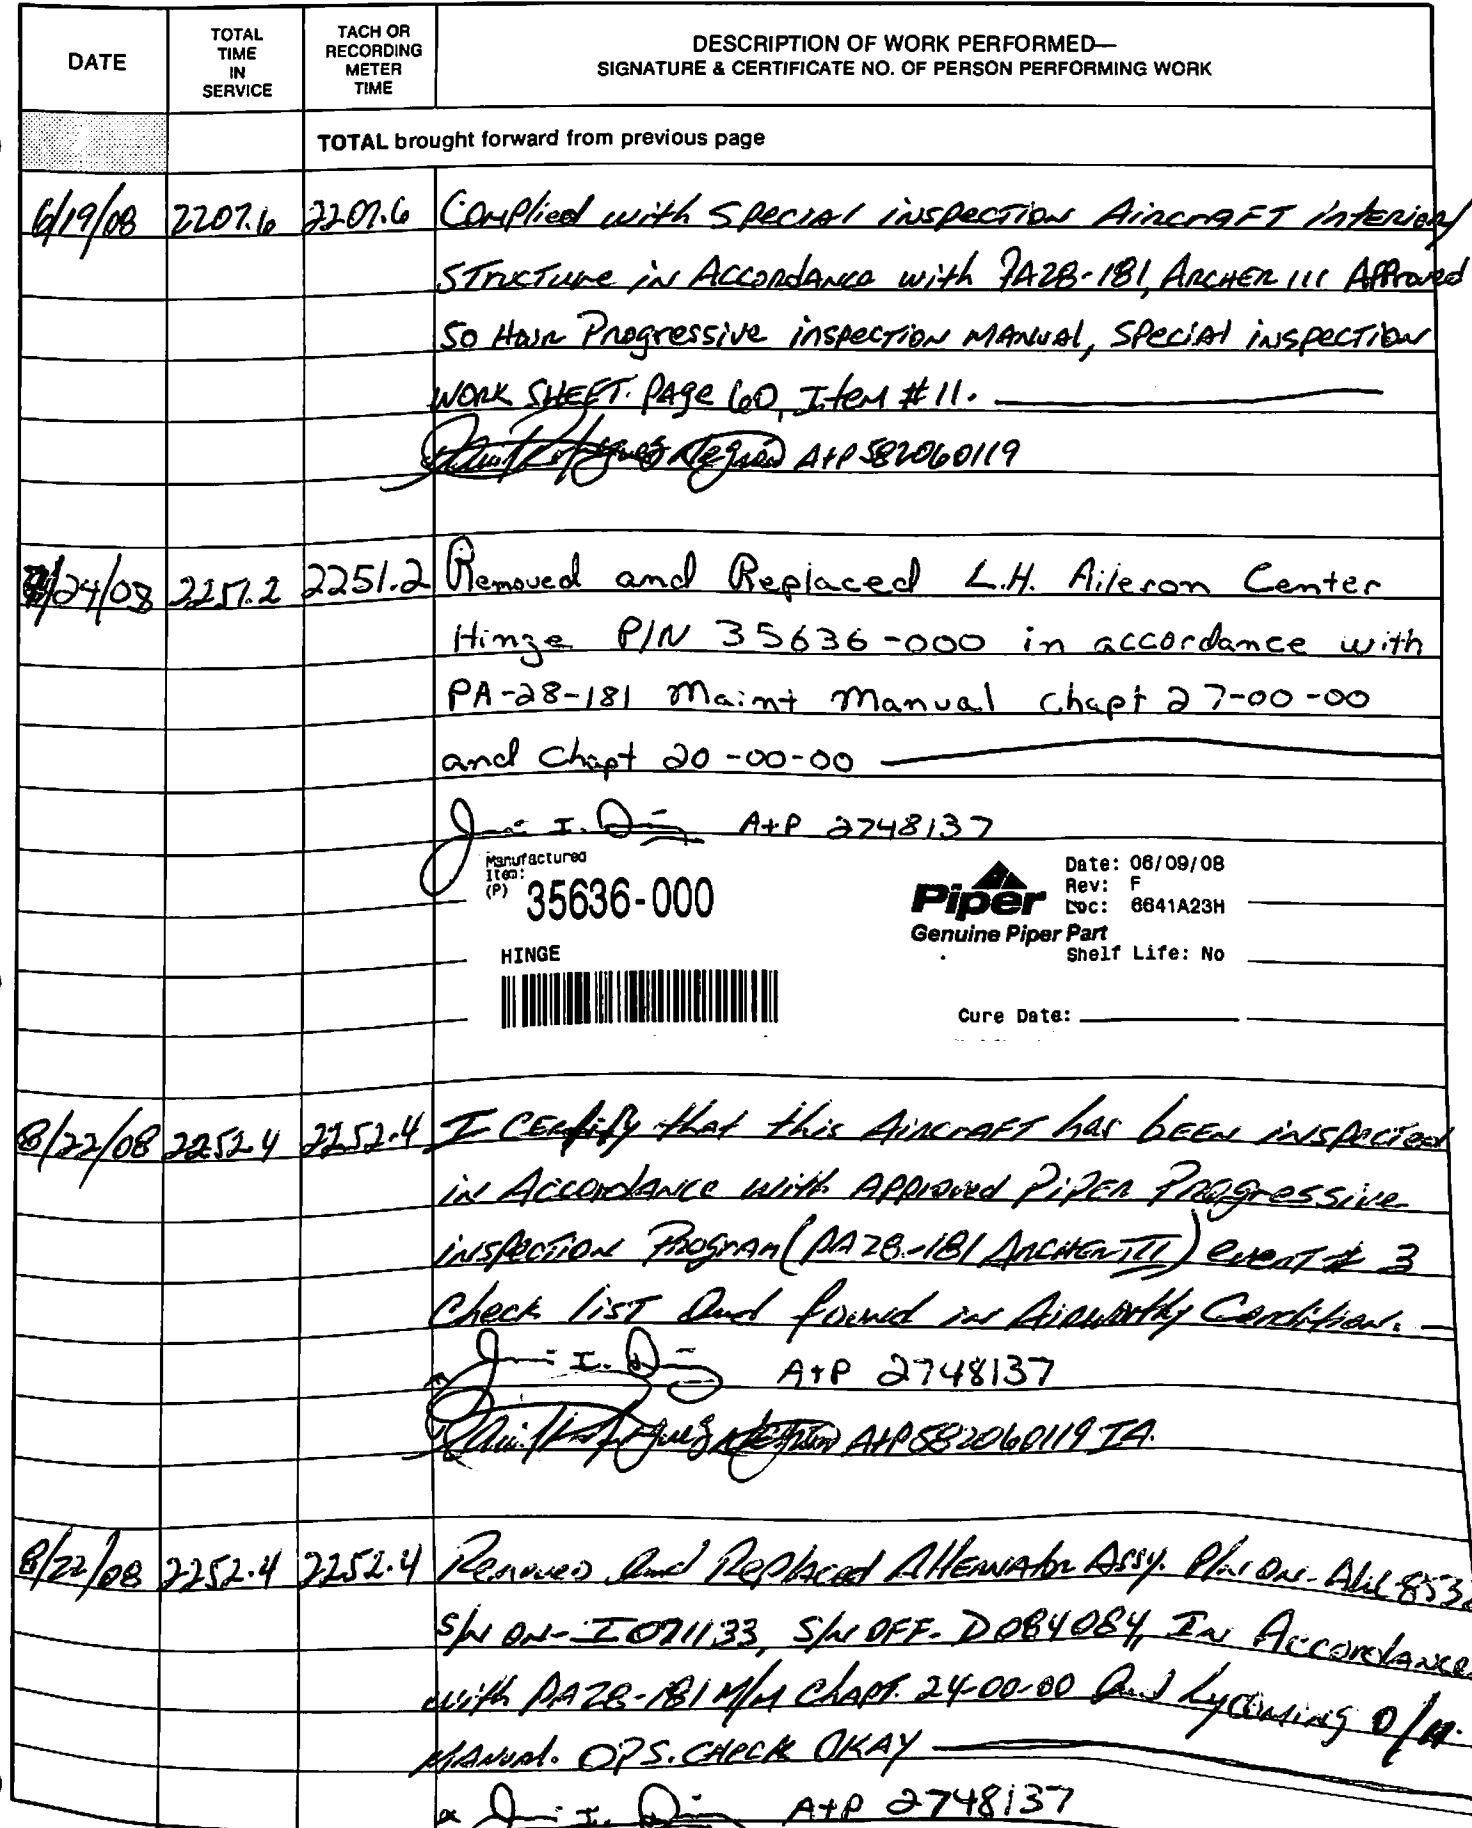 DATE
TOTAL TIME IN SERVICE
TACH OR RECORDING METER TIME
DESCRIPTION OF WORK PERFORMED—
SIGNATURE & CERTIFICATE NO. OF PERSON PERFORMING WORK
TOTAL brought forward from previous page
6/19/08 2207.6 2207.6 Complied with Special inspection Aircraft interior
Structure in Accordance with PA28-181, Archer III Approved
50 Hour Progressive inspection Manual, Special inspection
Work Sheet. Page 60, Item #11.
A+P 582060119
/24/08 2251.2 2251.2 Removed and Replaced L.H. Aileron Center
Hinge P/N 35636-000 in accordance with
PA-28-181 Maint Manual Chapt 27-00-00
and Chapt 20-00-00
A+P 2748137
Manufactured
Item:
(P) 35636-000
HINGE
Piper
Genuine Piper Part
Date: 06/09/08
Rev: F
Loc: 6641A23H
Shelf Life: No
Cure Date:
8/22/08 2252.4 2252.4 I Certify that this Aircraft has been inspected
in Accordance with Approved Piper Progressive
inspection Program (PA28-181 Archer III) event # 3
Check list And found in Airworthy Condition.
A+P 2748137
A+P 582060119 IA.
8/22/08 2252.4 2252.4 Removed And Replaced Alternator Assy. P/N ON-
S/N ON-I071133, S/N OFF-D084084, In Accordance
with PA28-181 M/M Chapt. 24-00-00 And Lycoming O/H.
Manual. OPS. Check OKAY
A+P 2748137